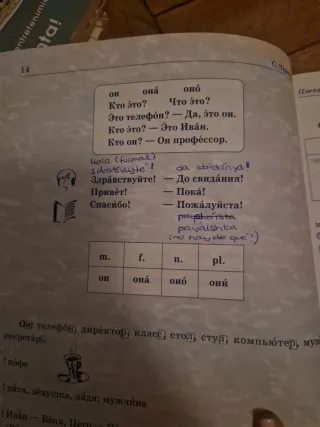 14
он она́ оно́
Кто э́то? Что э́то?
Э́то телефо́н? — Да, э́то он.
Кто э́то? — Э́то Ива́н.
Кто он? — Он профе́ссор.
Hola (formal)
da sbidánya!
Здра́вствуйте! — До свида́ния!
Приве́т! — Пока́!
Спаси́бо! — Пожа́луйста!
payálshta
(no hay de qué!)
m. f. n. pl.
он она́ оно́ они́
Он: телефо́н, дире́ктор, класс, стол, стул, компью́тер,
секрета́рь
! ко́фе
! па́па, де́душка, дя́дя; мужчи́на
! Ива́н — Ва́ня,